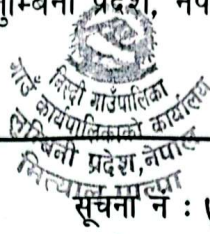 लुम्बिनी प्रदेश, नेप
निस्दी गाउँपालिका
गाउँ कार्यपालिकाको कार्यालय
लुम्बिनी प्रदेश, नेपाल
मित्याल पाल्पा
सूचना नं :